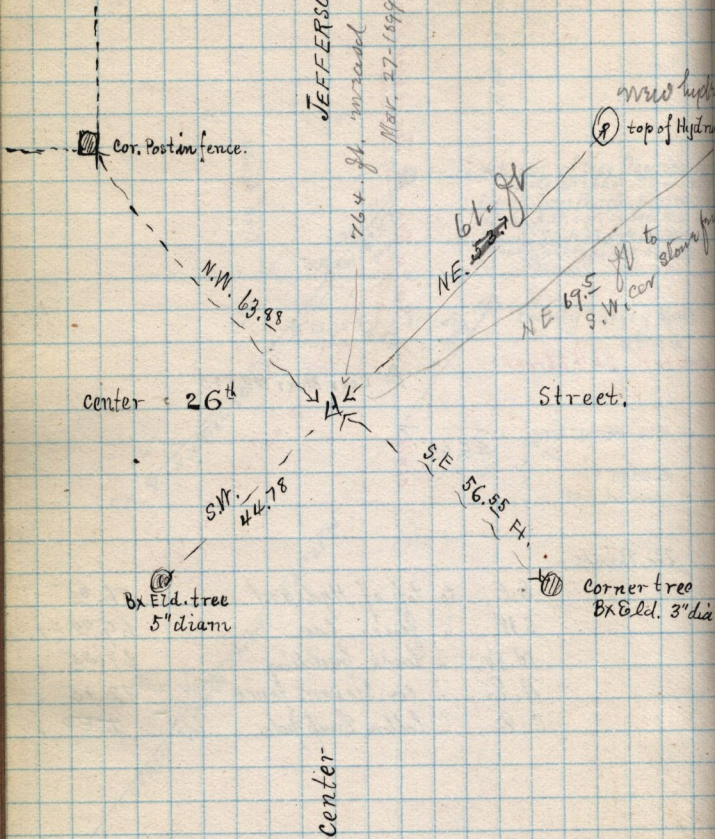 JEFFERSO
764 ft.
Nov. 27-1899
new hyd
top of Hydra
Cor. Post in fence.
61. ft
NE. 53.7
NE 69.5 ft to
S.W. cor stone
N.W. 63.88
center 26th Street.
S.W. 44.78
S.E 56.55 Ft.
Bx Eld. tree
5" diam
Corner tree
Bx Eld. 3" dia
Center